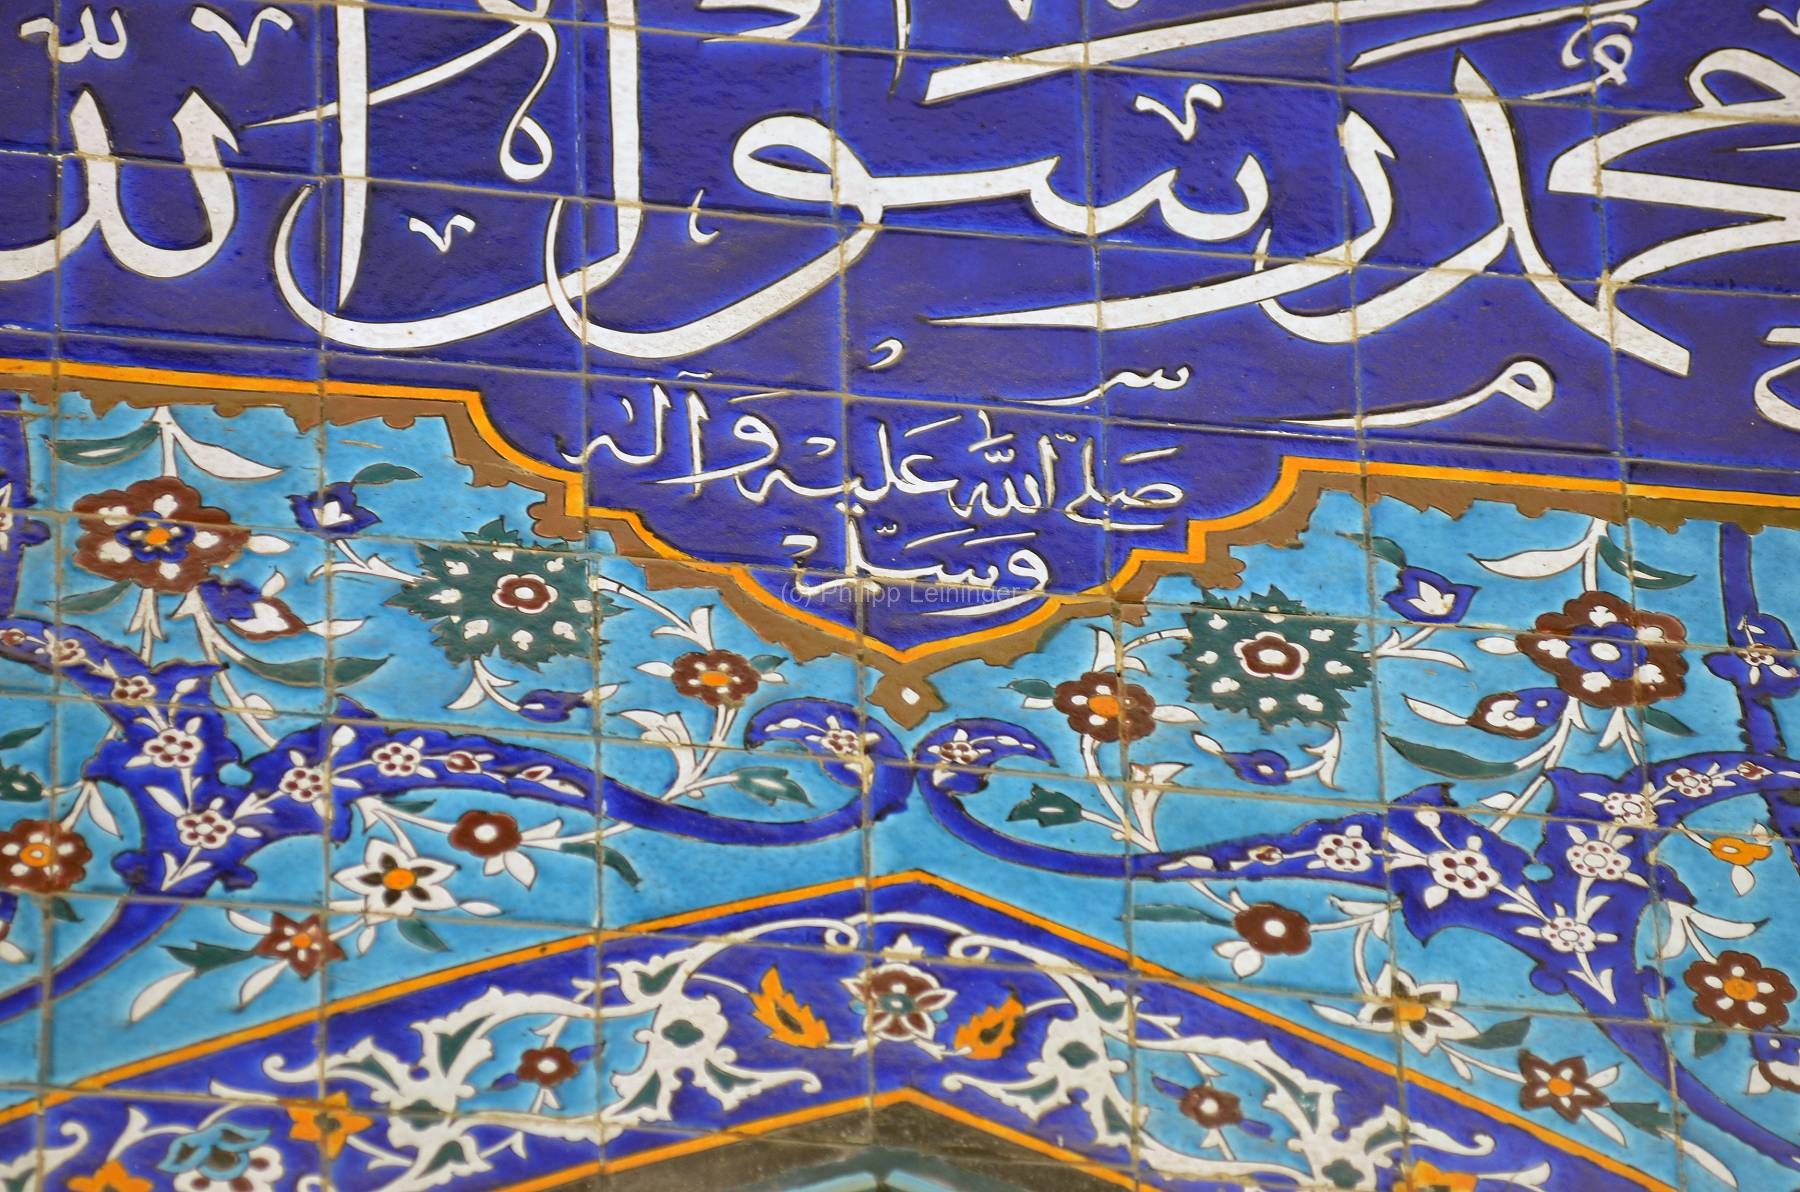 محمد رسول الله
صلى الله عليه وآله
وسلم
(c) Philipp Leininger